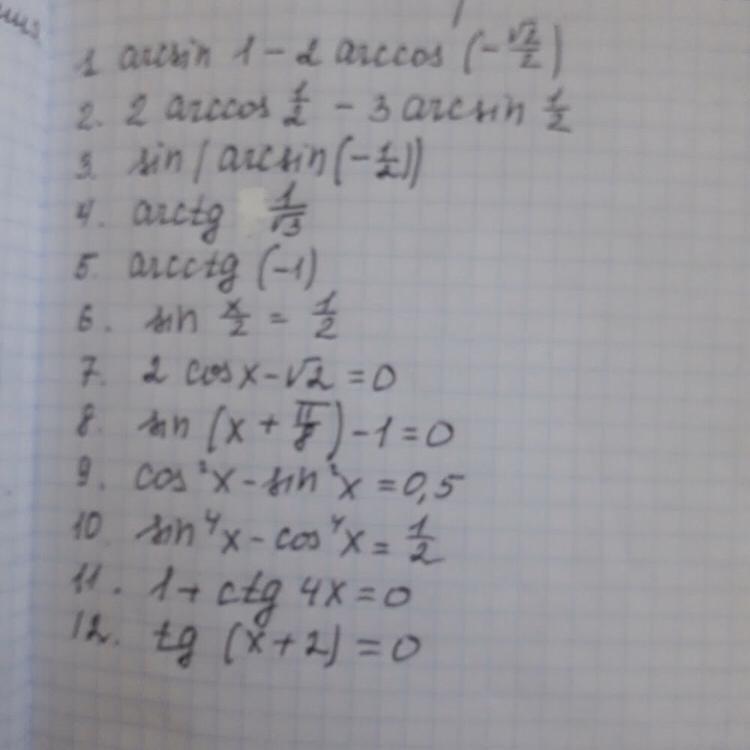 1 arcsin 1 - 2 arccos (-√2/2)
2. 2 arccos 1/2 - 3 arcsin 1/2
3. sin(arcsin(-1/2))
4. arctg 1/√3
5. arcctg (-1)
6. sin x/2 = 1/2
7. 2 cosx - √2 = 0
8. sin (x + π/8) - 1 = 0
9. cos²x - sin²x = 0,5
10 sin⁴x - cos⁴x = 1/2
11. 1 + ctg 4x = 0
12. tg (x + 2) = 0